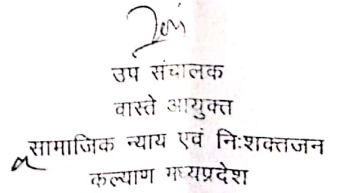 उप संचालक
वास्ते आयुक्त
सामाजिक न्याय एवं निःशक्तजन
कल्याण मध्यप्रदेश